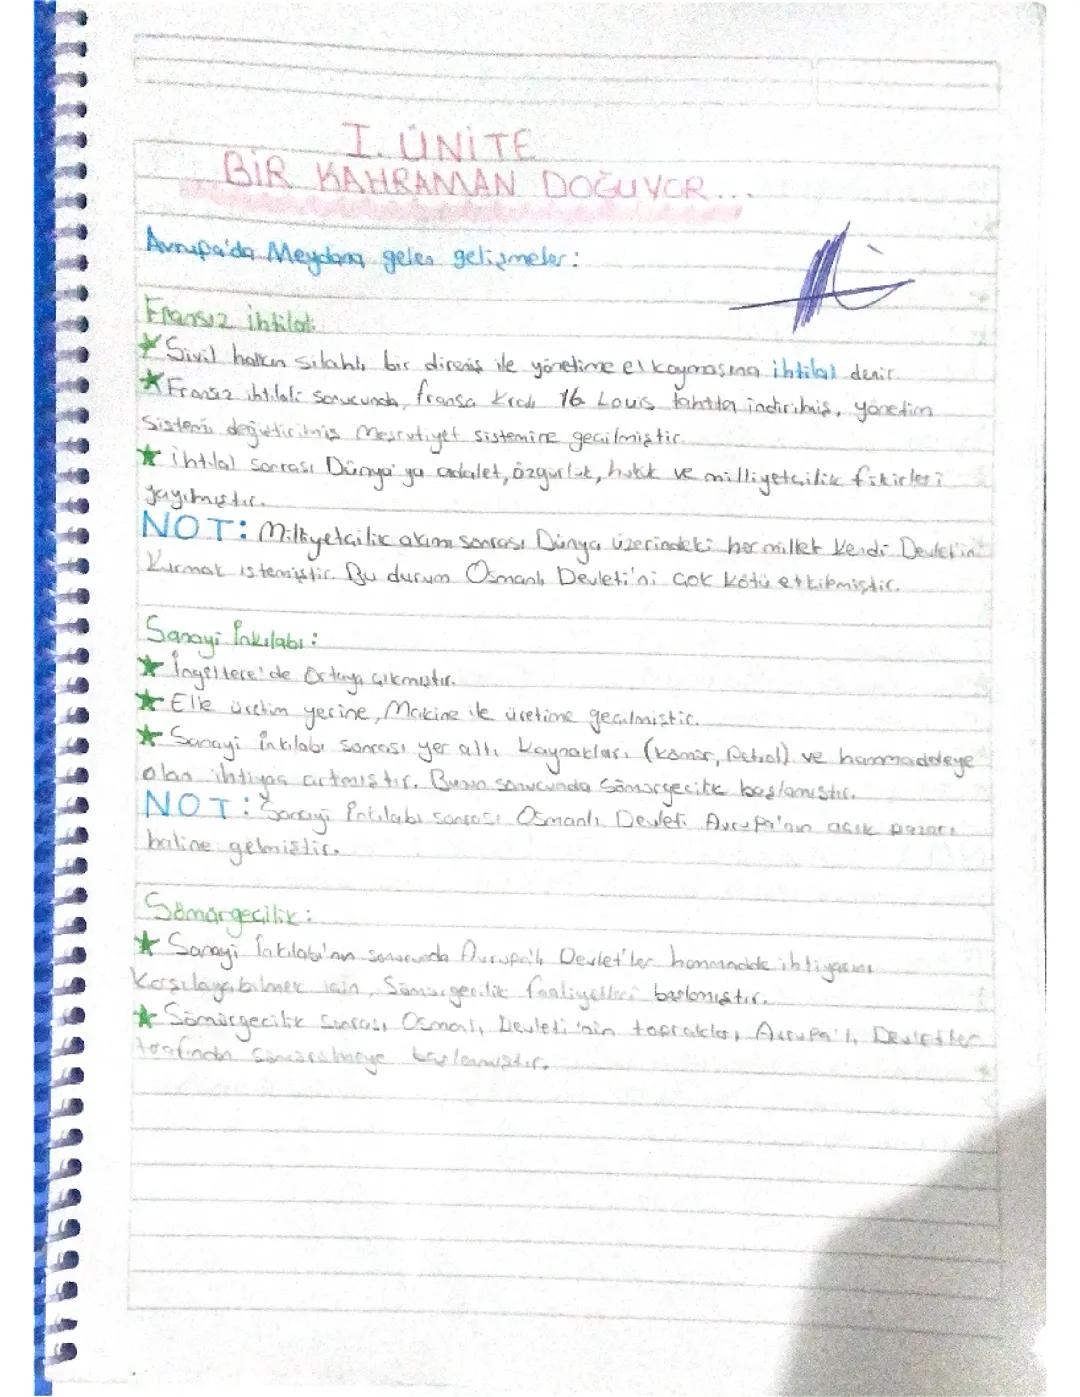 I. ÜNİTE
BİR KAHRAMAN DOĞUYOR...
Avrupa'da Meydana gelen gelişmeler:
Fransız İhtilali
Sivil halkın silahlı bir direniş ile yönetime el koymasına ihtilal denir.
Fransız ihtilali sonucunda, fransa Kralı 16 Louis tahtta indirilmiş, yönetim
Sistemi değiştirilmiş Meşrutiyet sistemine geçilmiştir.
ihtilal sonrası Dünya'ya adalet, özgürlük, hukuk ve milliyetçilik fikirleri
yayılmıştır.
NOT: Milliyetçilik akımı sonrası Dünya üzerindeki her millet kendi Devletini
Kurmak istemiştir. Bu durum Osmanlı Devleti'ni çok kötü etkilemiştir.
Sanayi İnkılabı:
İngiltere'de Ortaya çıkmıştır.
Elle üretim yerine, Makine ile üretime geçilmiştir.
Sanayi inkılabı sonrası yer altı kaynakları (kömür, Petrol) ve hammaddeye
olan ihtiyaç artmıştır. Bunun sonucunda Sömürgecilik başlamıştır.
NOT: Sanayi İnkılabı sonrası Osmanlı Devleti Avrupa'nın açık pazarı
haline gelmiştir.
Sömürgecilik:
Sanayi İnkılabı'nın sonucunda Avrupalı Devlet'ler hammadde ihtiyacını
Karşılayabilmek için, Sömürgecilik faaliyetleri başlamıştır.
Sömürgecilik Sonrası Osmanlı Devleti'nin toprakları Avrupa'lı Devletler
tarafından sömürülmeye başlanmıştır.